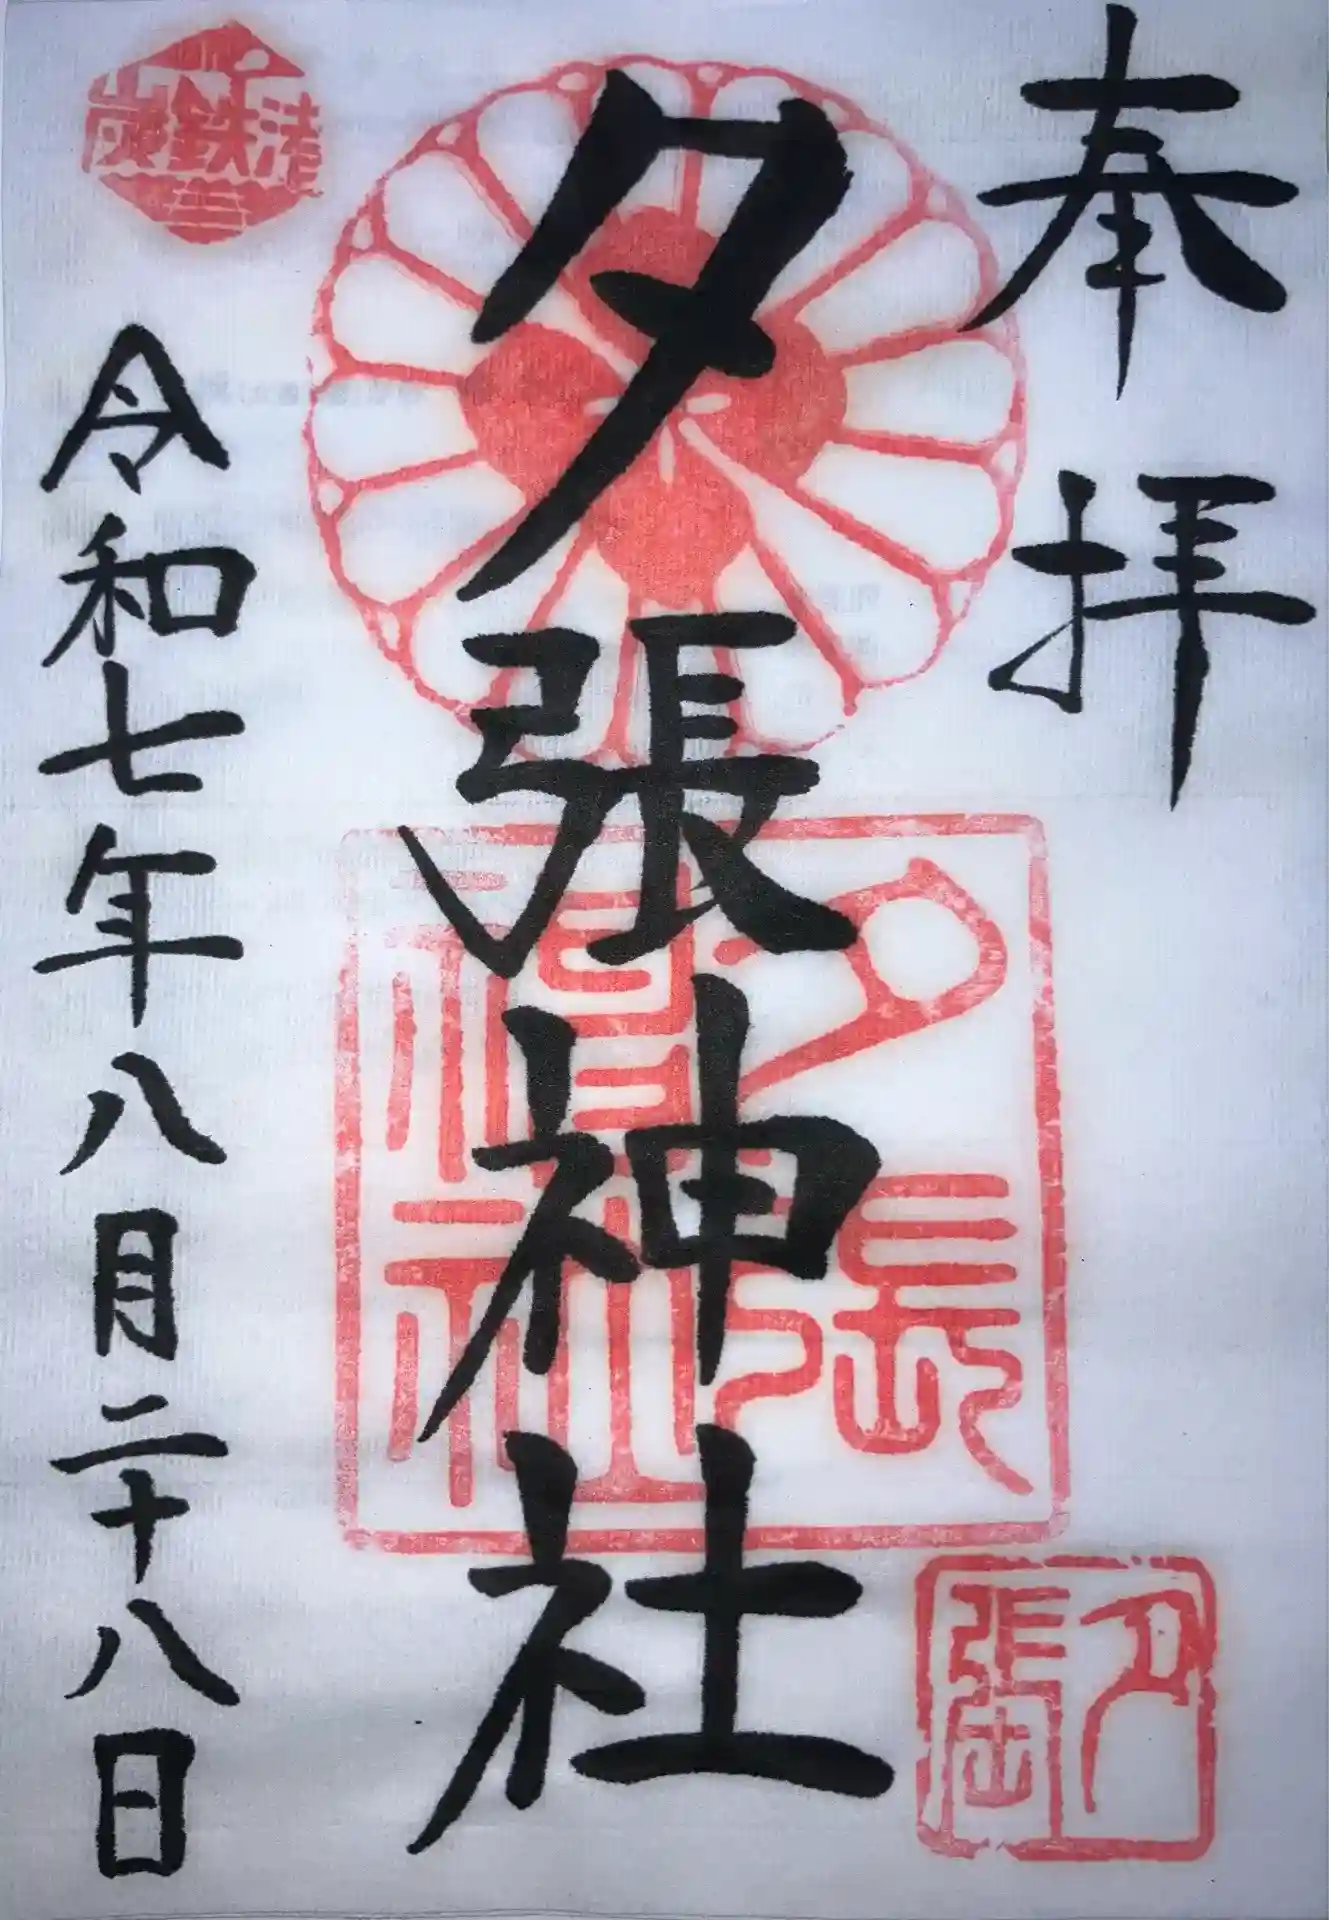 奉拝
夕張神社
令和七年八月二十八日
炭鉄港
夕張神社
夕張